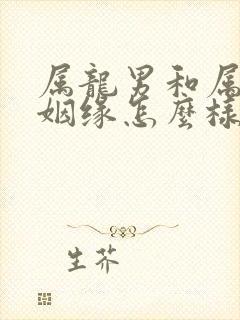 属龍男和属
姻缘怎麼樣
生芥